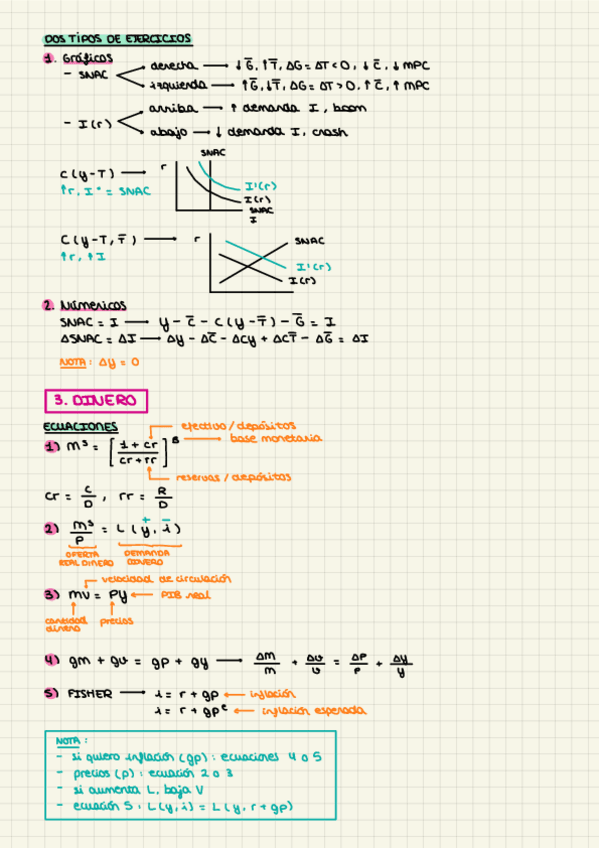 DOS TIPOS DE EJERCICIOS
1. Gráficos
- SNAC
derecha → ↓G̅, ↑T̅, ΔG = ΔT < 0, ↓C̅, ↓MPC
izquierda → ↑G̅, ↓T̅, ΔG = ΔT > 0, ↑C̅, ↑MPC
- I(r)
arriba → ↑ demanda I, boom
abajo → ↓ demanda I, crash
C(y-T) → r SNAC
↑r, I* = SNAC
I'(r)
I(r)
SNAC
I
C(y-T, r̅) → r SNAC
↑r, ↑I
I'(r)
I(r)
2. Númericos
SNAC = I → y - C̅ - c(y-T̅) - G̅ = I
ΔSNAC = ΔI → Δy - ΔC̅ - Δcy + ΔcT̅ - ΔG̅ = ΔI
NOTA: Δy = 0
3. DINERO
ECUACIONES
efectivo / depósitos
1) Mˢ = [1 + cr / cr + rr] B → base monetaria
reservas / depósitos
cr = C/D, rr = R/D
2) Mˢ/P = L(y, i)
+ -
OFERTA REAL DINERO
DEMANDA DINERO
velocidad de circulación
3) MV = PY ← PIB real
cantidad dinero
precios
4) gm + gv = gp + gy → Δm/m + Δv/v = Δp/p + Δy/y
5) FISHER → i = r + gp ← inflación
i = r + gpᵉ ← inflación esperada
NOTA:
- si quiero inflación (gp): ecuaciones 4 o 5
- precios (p): ecuación 2 o 3
- si aumenta L, baja V
- ecuación 5: L(y, i) = L(y, r + gp)